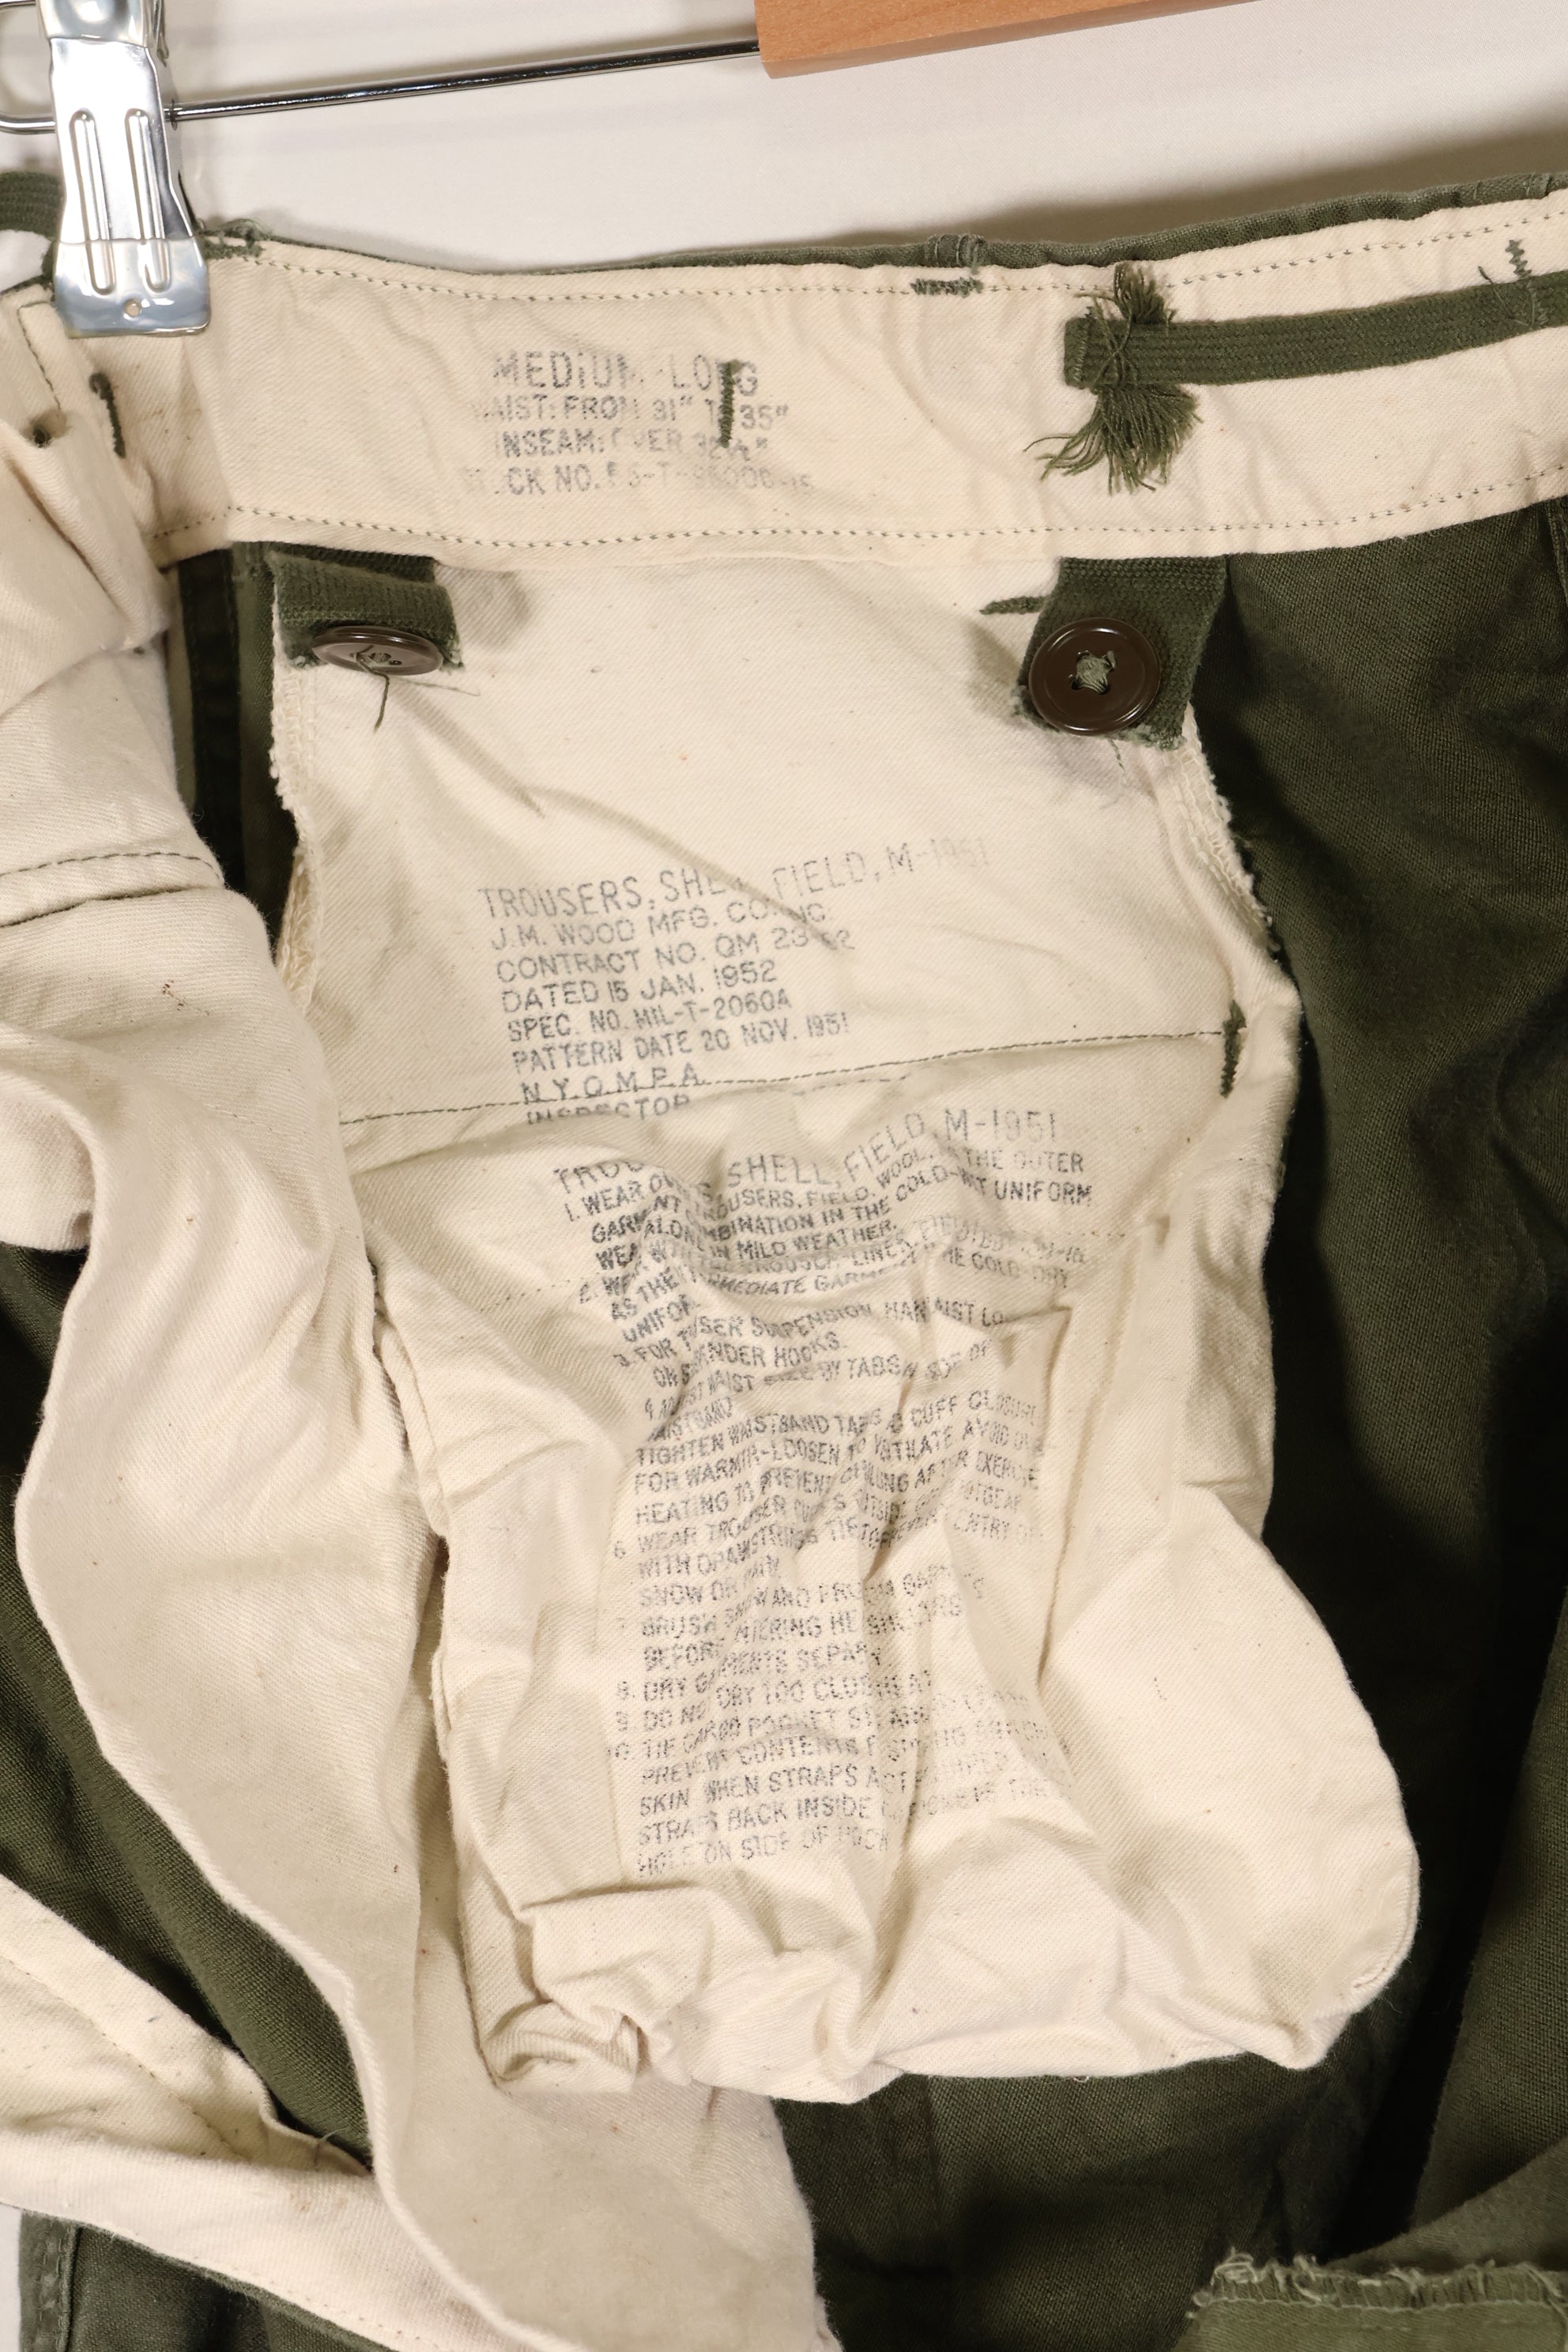 MEDIUM-LONG
WAIST: FROM 31" TO 35"
INSEAM: OVER 32½"
STOCK NO. 55-T-
TROUSERS, SHELL, FIELD, M-1951
J.M. WOOD MFG. CO. INC.
CONTRACT NO. QM 23
DATED 15 JAN. 1952
SPEC. NO. MIL-T-2060A
PATTERN DATE 20 NOV. 1951
N.Y.Q.M.P.A.
INSPECTOR
TROUSERS, SHELL, FIELD, M-1951
1. WEAR OVER TROUSERS, FIELD, WOOL, THE OUTER
GARMENT COMBINATION IN THE COLD-WET UNIFORM
WEAR ALONE IN MILD WEATHER.
2. WEAR WITH TROUSER-LINER, FIELD BUTTON-IN
AS THE INTERMEDIATE GARMENT THE COLD-DRY
UNIFORM
3. FOR TROUSER SUSPENSION, WAIST
OR SUSPENDER HOOKS.
4. ADJUST WAIST SIZE BY TABS SIDE OF
WAISTBAND
TIGHTEN WAISTBAND TABS & CUFF CLOSURE
FOR WARMTH-LOOSEN TO VENTILATE AVOID OVER
HEATING TO PREVENT CHILLING AFTER EXERCISE
6. WEAR TROUSER CUFFS OUTSIDE FOOTGEAR
WITH DRAWSTRINGS TIED TO PREVENT ENTRY OF
SNOW OR RAIN.
7. BRUSH SNOW AND FROST GARMENTS
BEFORE ENTERING SHELTERS
8. DRY GARMENTS SEPARATELY
9. DO NOT DRY TOO CLOSE HEAT
10. TIE CARGO POCKET
PREVENT CONTENTS
SKIN. WHEN STRAPS
STRAPS BACK INSIDE
HOLE ON SIDE OF